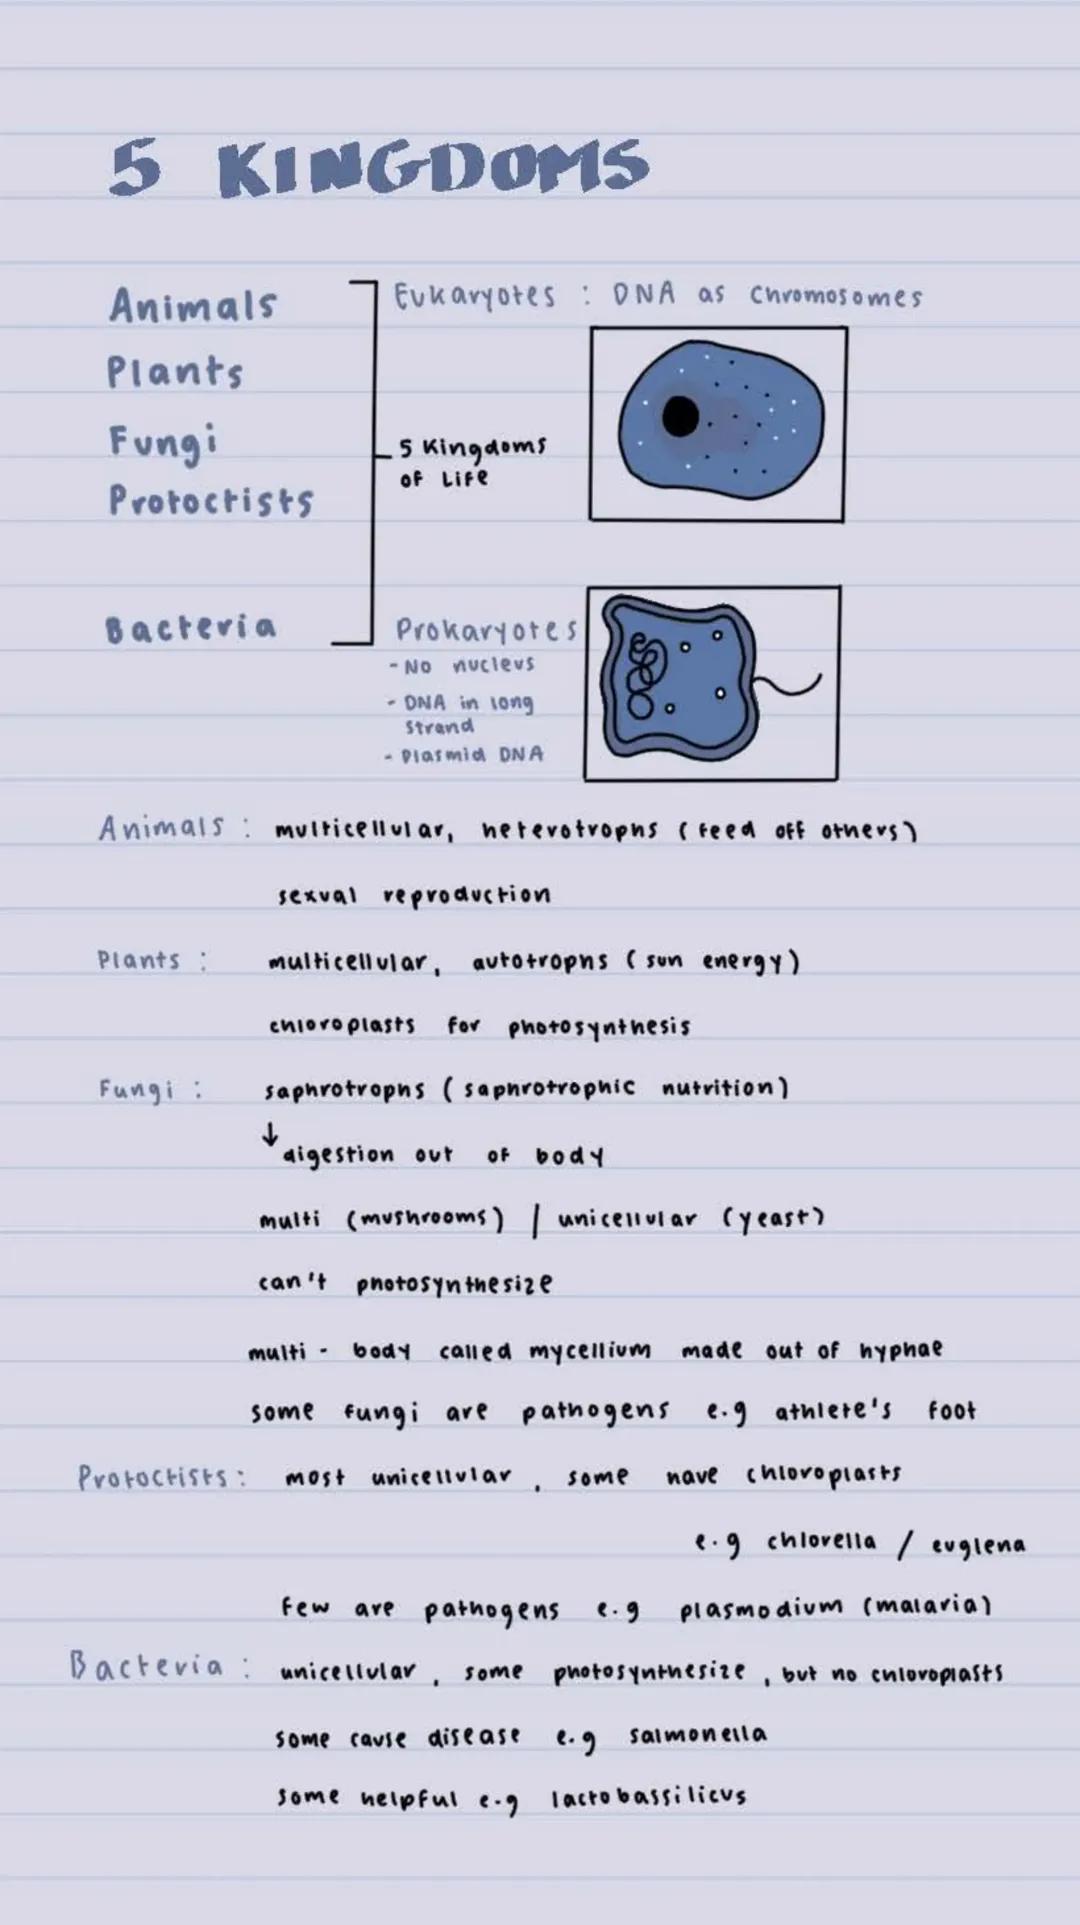 5 KINGDOMS
Animals
Plants
Fungi
Protoctists
Bacteria
Eukaryotes : DNA as Chromosomes
5 Kingdoms
of Life
Prokaryotes
- No nucleus
- DNA in long
strand
- Plasmid DNA
Animals : multicellular, heterotrophs (feed off others)
sexual reproduction
Plants : multicellular, autotrophs (sun energy)
chloroplasts for photosynthesis
Fungi : saphrotrophs (saphrotrophic nutrition)
↓ digestion out of body
multi (mushrooms) / unicellular (yeast)
can't photosynthesize
multi - body called mycellium made out of hyphae
some fungi are pathogens e.g athlete's foot
Protoctists : most unicellular, some have chloroplasts
e.g chlorella / euglena
Few are pathogens e.g plasmodium (malaria)
Bacteria : unicellular, some photosynthesize, but no chloroplasts
some cause disease e.g salmonella
some helpful e.g lactobassilicus